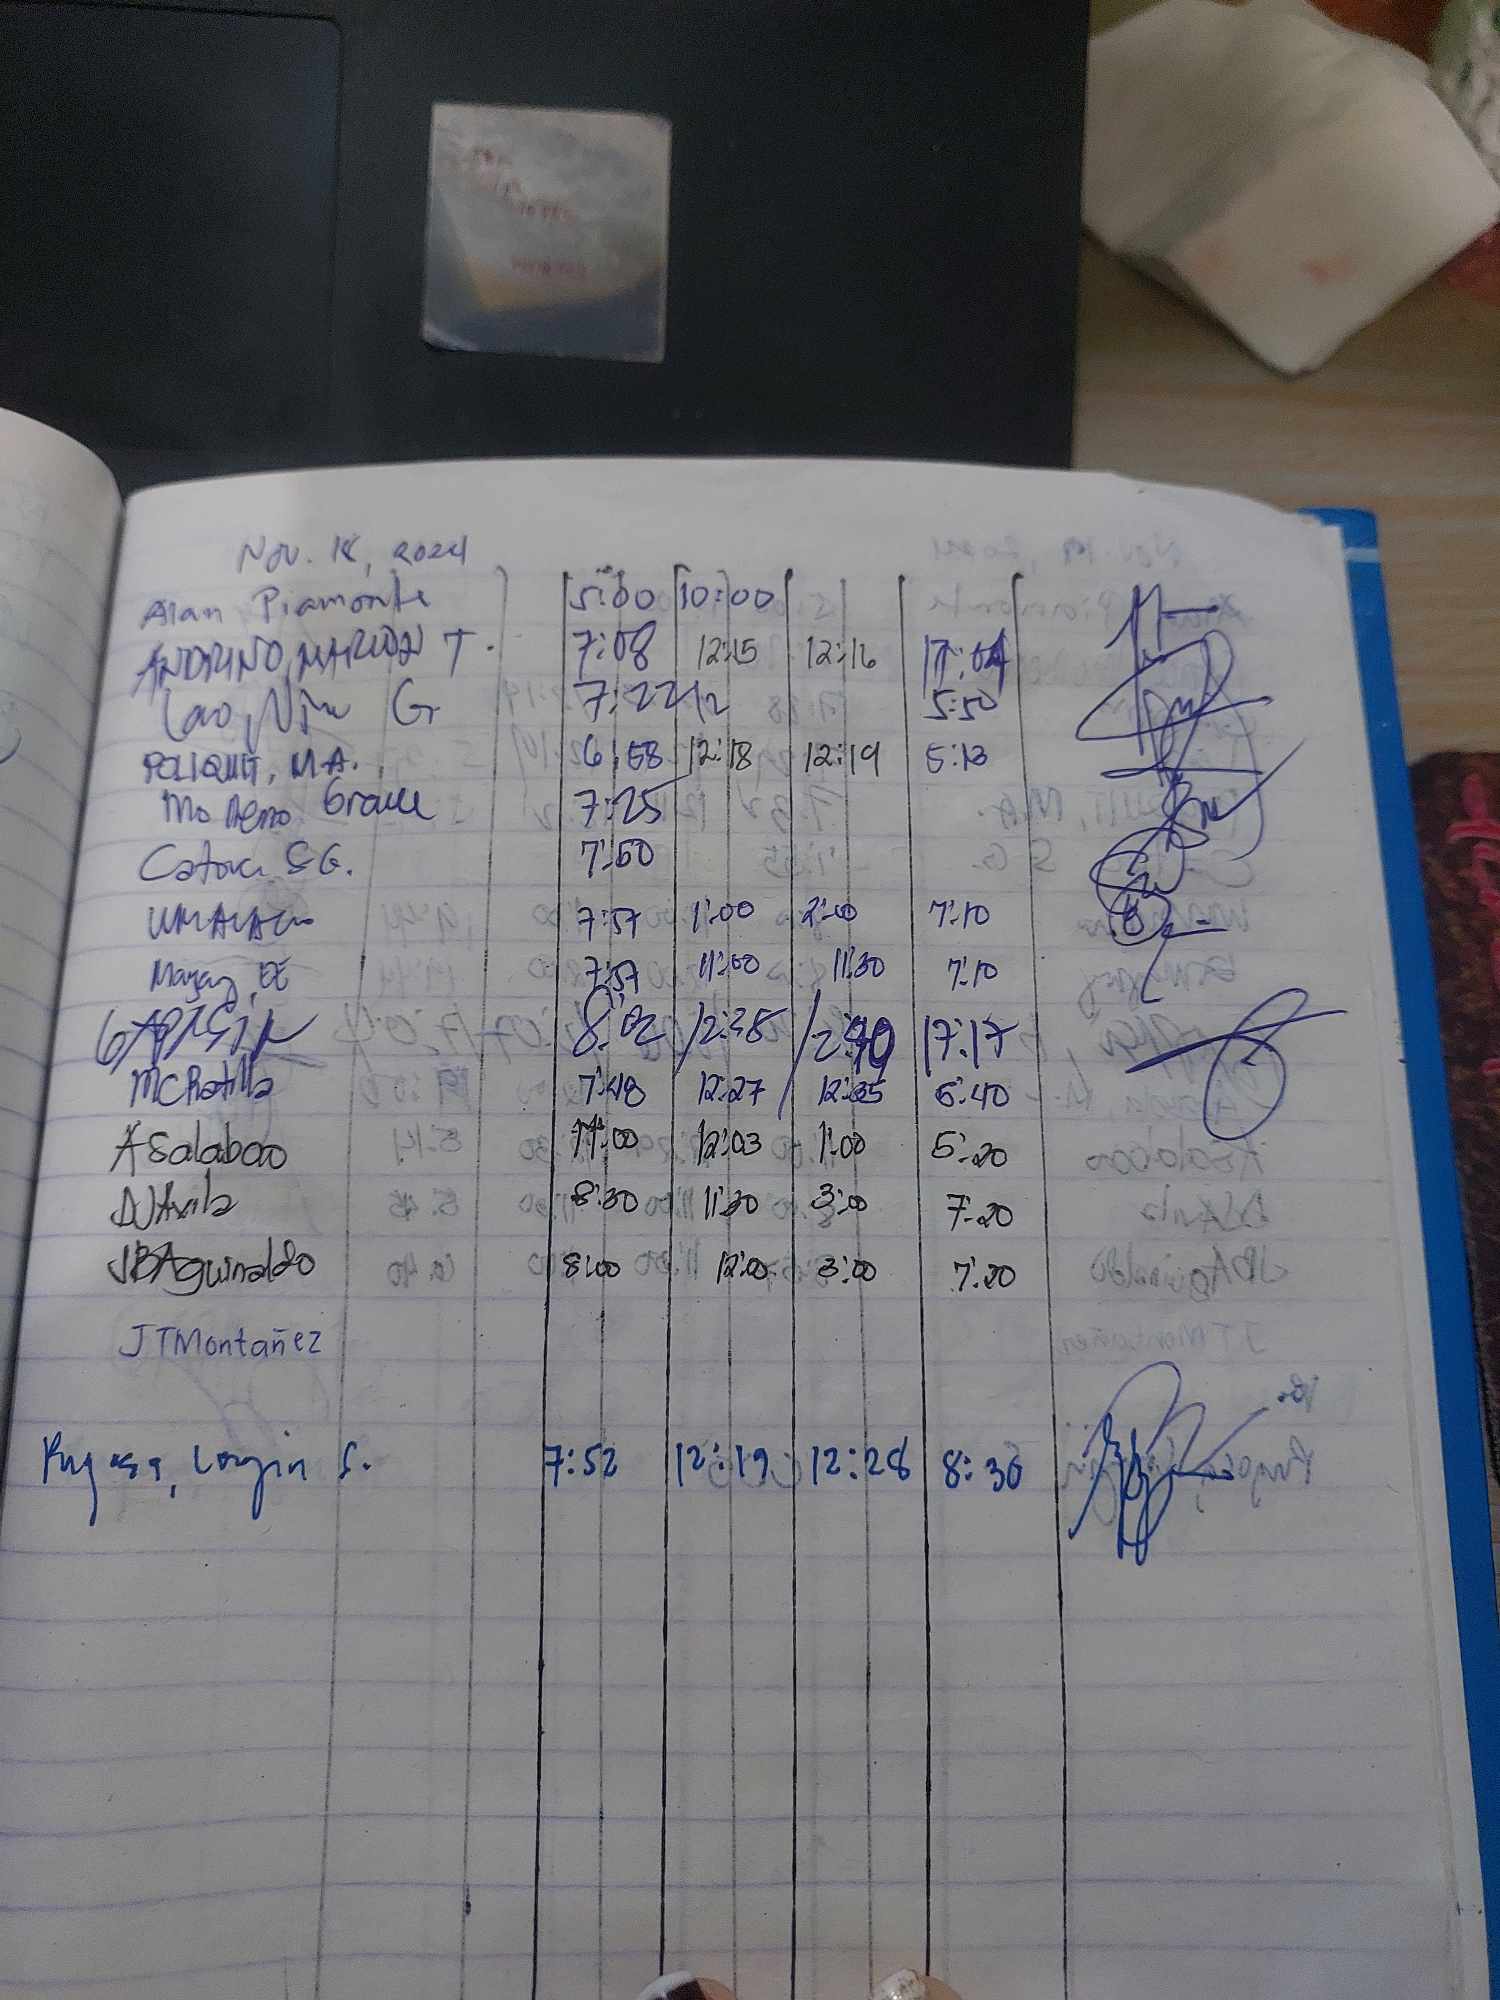 Nov. 18, 2024
Alan Piamonte 5:00 10:00
ANORINO, MARION T. 7:08 12:15 12:16 17:04
Lao, G 7:22 12 5:50
POLIQUIT, M.A. 6:58 12:18 12:19 5:13
Moreno Grace 7:25
S G. 7:50
7:57 11:00 2:00 7:10
7:57 11:00 11:30 7:10
8:02 12:38 12:40 17:17
MCRatilla 7:48 12:27 12:35 5:40
ASalabao 11:00 12:03 1:00 5:20
DJAvila 8:30 11:30 3:00 7:20
JBAguinaldo 8:00 12:00 3:00 7:20
JTMontañez
S. 7:52 12:19 12:28 8:36